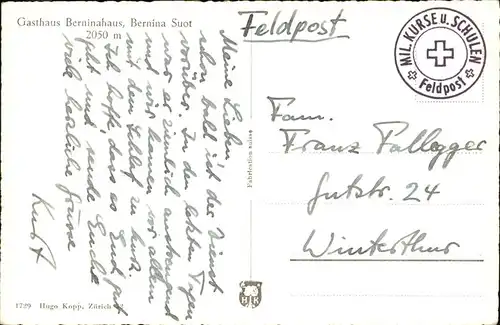 Gasthaus Berninahaus, Bernina Suot
2050 m
Feldpost
MIL. KURSE u. SCHULEN
Feldpost
Meine Lieben
schon bald ist der Dienst
vorüber. In den letzten Tagen
war es ziemlich anstrengend
und wir kamen vor allem
mit dem Schlaf zu kurz.
Ich hoffe, dass es Euch gut
geht und sende Euch
viele herzliche Grüsse
Kurt
Fam.
Franz Fallegger
Gutstr. 24
Winterthur
1729 Hugo Kopp, Zürich